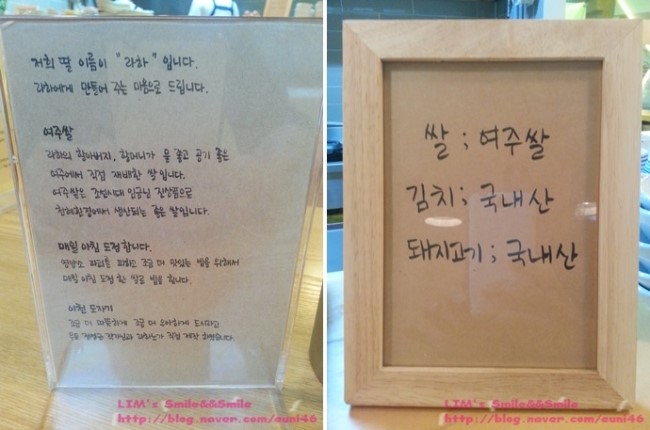 저희 딸 이름이 "라화" 입니다.
라화에게 만들어 주는 마음으로 드립니다.
여주쌀
라화의 할아버지, 할머니가 물 좋고 공기 좋은
여주에서 직접 재배한 쌀입니다.
여주쌀은 조선시대 임금님 진상품으로
천혜환경에서 생산되는 좋은 쌀입니다.
매일 아침 도정합니다.
영양소 파괴를 피하고 조금 더 맛있는 밥을 위해서
매일 아침 도정한 쌀로 밥을 합니다.
이천 도자기
조금 더 따뜻하게 조금 더 우아하게 드시라고
직접 제작 하였습니다.
LIM's Smile&&Smile
http://blog.naver.com/euni46
쌀 ; 여주쌀
김치 ; 국내산
돼지고기 ; 국내산
LIM's Smile&&Smile
http://blog.naver.com/euni46